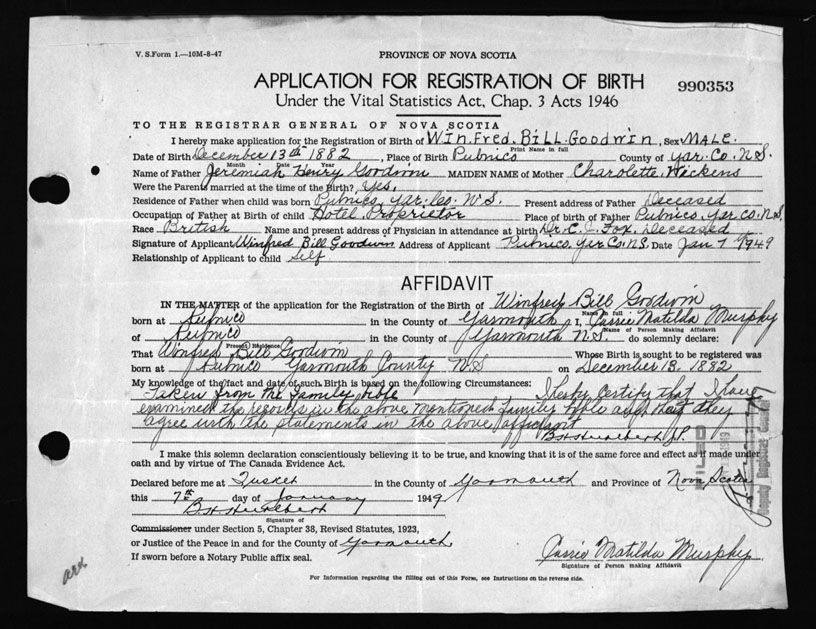 V. S. Form 1.—10M-8-47
PROVINCE OF NOVA SCOTIA
APPLICATION FOR REGISTRATION OF BIRTH
990353
Under the Vital Statistics Act, Chap. 3 Acts 1946
TO THE REGISTRAR GENERAL OF NOVA SCOTIA
I hereby make application for the Registration of Birth of Winfred. Bill. Goodwin, Sex Male.
Print Name in full
Date of Birth December 13th 1882, Place of Birth Pubnico County of Yar. Co. N.S.
Month Date Year
Name of Father Jeremiah Henry Goodwin MAIDEN NAME of Mother Charolette, Wickens
Were the Parents married at the time of the Birth? Yes.
Residence of Father when child was born Pubnico, Yar. Co. N.S. Present address of Father Deceased
Occupation of Father at Birth of child Hotel Proprietor Place of birth of Father Pubnico, Yar Co. N.S.
Race British Name and present address of Physician in attendance at birth Dr. C. J. Fox, Deceased
Signature of Applicant Winfred Bill Goodwin Address of Applicant Pubnico, Yar Co. N.S. Date Jan 7 1949
Relationship of Applicant to child Self
AFFIDAVIT
IN THE MATTER of the application for the Registration of the Birth of Winfred Bill Goodwin
Name in full
born at Pubnico in the County of Yarmouth I, Carrie Matilda Murphy
Name of Person Making Affidavit
of Pubnico in the County of Yarmouth N.S. do solemnly declare:
Present Residence
That Winfred Bill Goodwin Whose Birth is sought to be registered was
born at Pubnico Yarmouth County N.S. on December 13, 1882
My knowledge of the fact and date of such Birth is based on the following Circumstances:
Taken from the family bible I hereby certify that I have
examined the records in the above mentioned family bible and that they
agree with the statements in the above affidavit
B. H. Hurlbert J.P.
I make this solemn declaration conscientiously believing it to be true, and knowing that it is of the same force and effect as if made under
oath and by virtue of The Canada Evidence Act.
Declared before me at Tusket in the County of Yarmouth and Province of Nova Scotia
this 7th day of January 1949
B. H. Hurlbert
Signature of
Commissioner under Section 5, Chapter 38, Revised Statutes, 1923,
or Justice of the Peace in and for the County of Yarmouth
If sworn before a Notary Public affix seal.
Carrie Matilda Murphy
Signature of Person making Affidavit
For Information regarding the filling out of this Form, see Instructions on the reverse side.
FILED
Deputy Registrar General